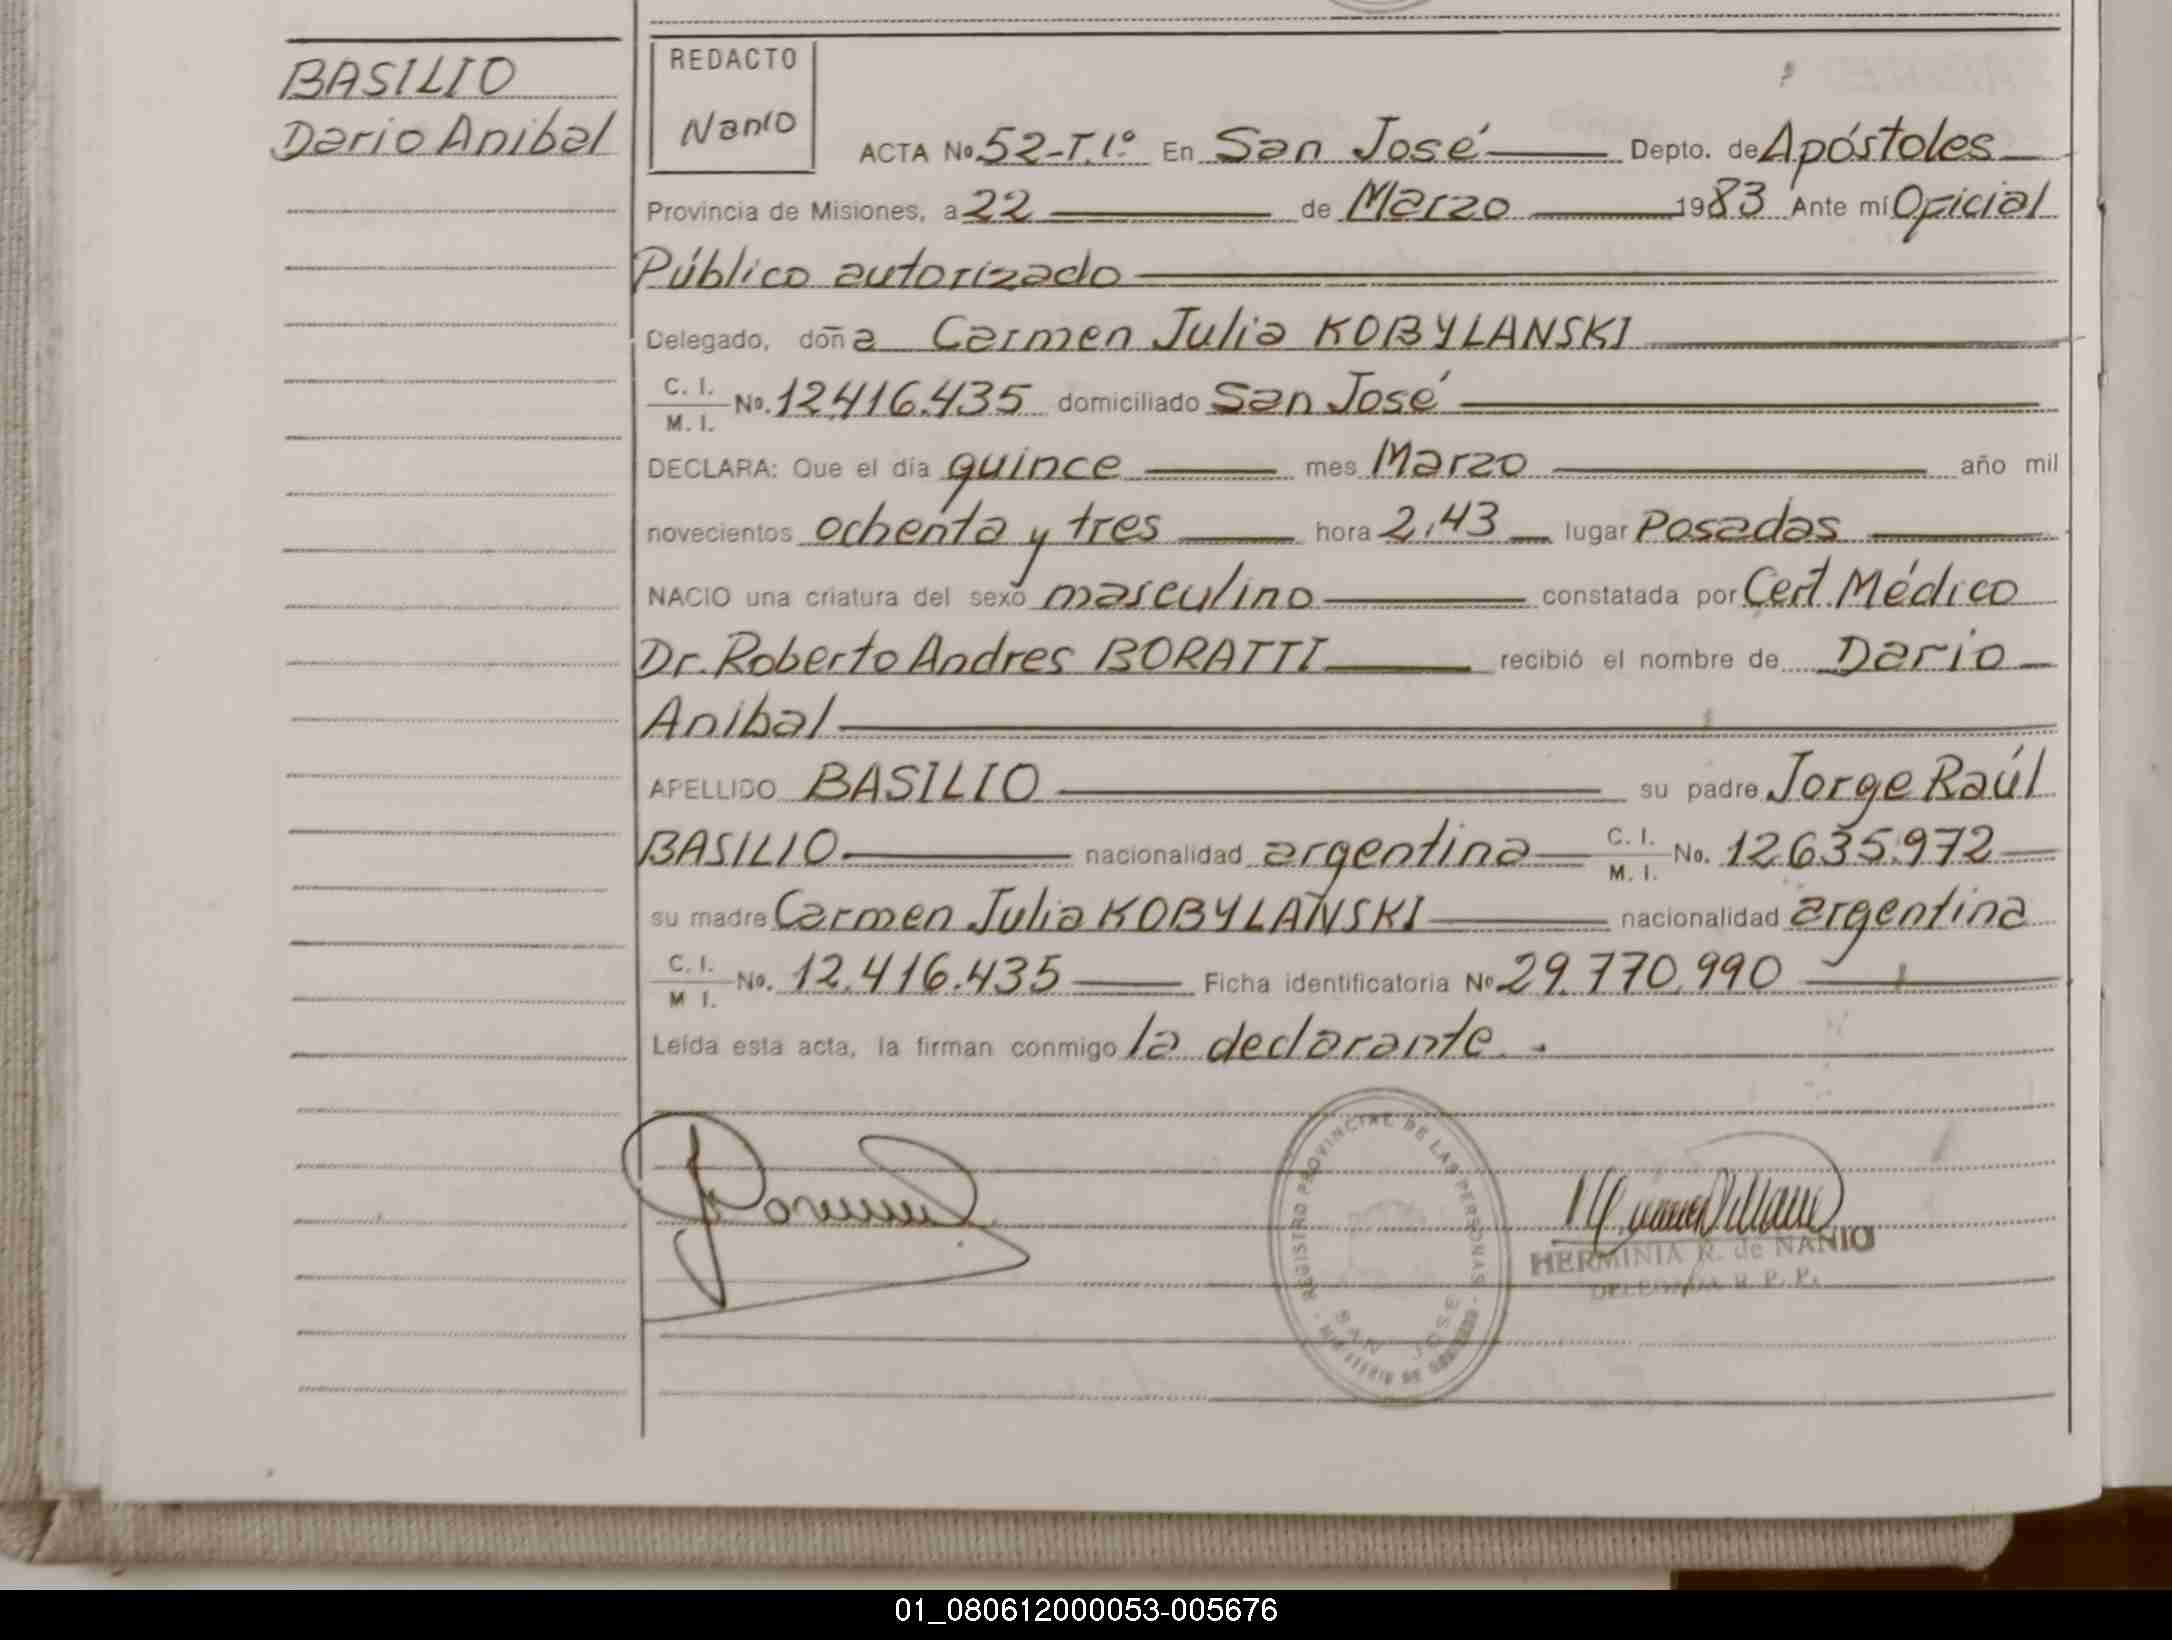 BASILIO
Dario Anibal
REDACTO
Nanio
ACTA No. 52-T.1º En San José Depto. de Apóstoles
Provincia de Misiones, a 22 de Marzo 1983 Ante mí Oficial
Público autorizado
Delegado, doña Carmen Julia KOBYLANSKI
C. I. M. I. No. 12.416.435 domiciliado San José
DECLARA: Que el día quince mes Marzo año mil
novecientos ochenta y tres hora 2,43 lugar Posadas
NACIO una criatura del sexo masculino constatada por Cert. Médico
Dr. Roberto Andres BORATTI recibió el nombre de Dario
Anibal
APELLIDO BASILIO su padre Jorge Raúl
BASILIO nacionalidad argentina C. I. M. I. No. 12.635.972
su madre Carmen Julia KOBYLANSKI nacionalidad argentina
C. I. M I. No. 12.416.435 Ficha identificatoria No 29.770.990
Leída esta acta, la firman conmigo la declarante.
REGISTRO PROVINCIAL DE LAS PERSONAS
SAN JOSE
MINISTERIO DE GOBIERNO
HERMINIA R. de NANIO
DELEGADA R. P. P.
01_080612000053-005676